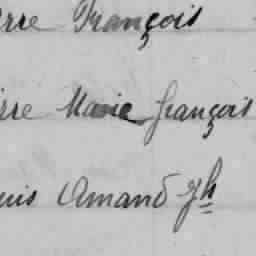 rre François
rre Marie françois
uis Amand